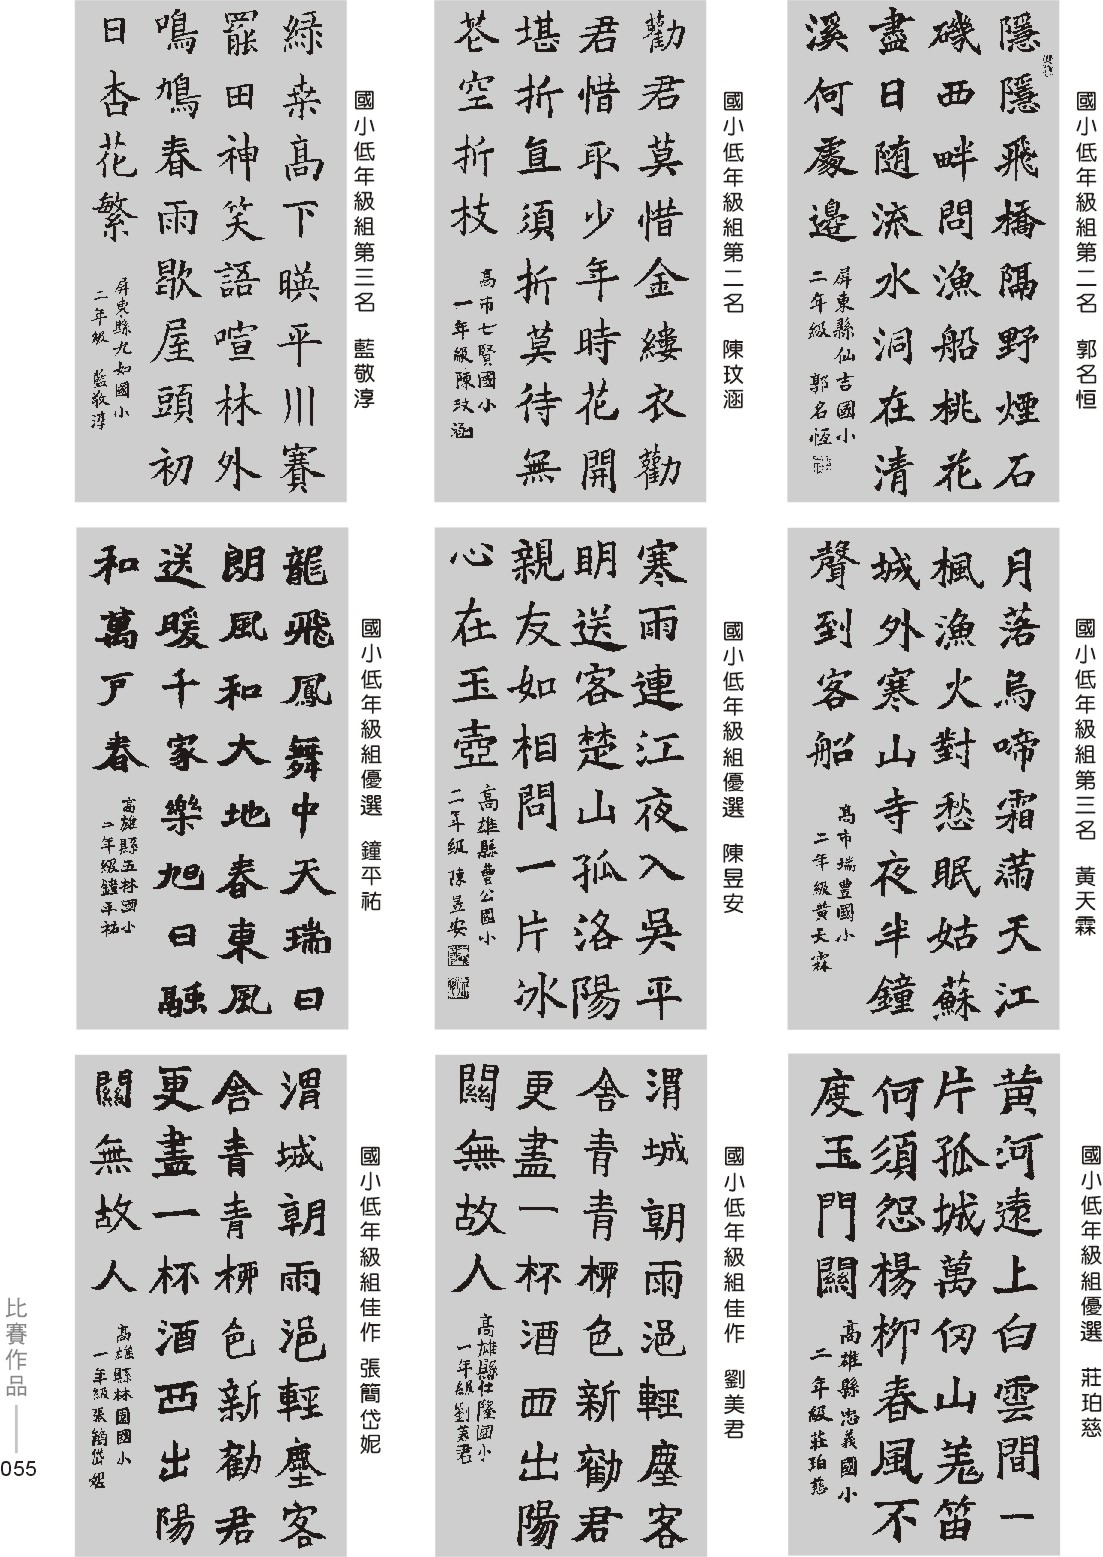 隱隱飛橋隔野煙石
磯西畔問漁船桃花
盡日隨流水洞在清
溪何處邊
屏東縣仙吉國小
二年級 郭名恆
國小低年級組第二名 郭名恒
勸君莫惜金縷衣勸
君惜取少年時花開
堪折直須折莫待無
花空折枝
高市七賢國小
一年級陳玟涵
國小低年級組第二名 陳玟涵
綠桑高下暎平川賽
罷田神笑語喧林外
鳴鳩春雨歇屋頭初
日杏花繁
屏東縣九如國小
二年級 藍敬淳
國小低年級組第三名 藍敬淳
月落烏啼霜滿天江
楓漁火對愁眠姑蘇
城外寒山寺夜半鐘
聲到客船
高市瑞豐國小
二年級黃天霖
國小低年級組第三名 黃天霖
寒雨連江夜入吳平
明送客楚山孤洛陽
親友如相問一片冰
心在玉壺
高雄縣曹公國小
二年級 陳昱安
國小低年級組優選 陳昱安
龍飛鳳舞中天瑞日
朗風和大地春東風
送暖千家樂旭日融
和萬戶春
高雄縣五林國小
二年級鐘平祐
國小低年級組優選 鐘平祐
黃河遠上白雲間一
片孤城萬仞山羌笛
何須怨楊柳春風不
度玉門關
高雄縣忠義國小
二年級莊珀慈
國小低年級組優選 莊珀慈
渭城朝雨浥輕塵客
舍青青柳色新勸君
更盡一杯酒西出陽
關無故人
高雄縣仕隆國小
一年級劉美君
國小低年級組佳作 劉美君
渭城朝雨浥輕塵客
舍青青柳色新勸君
更盡一杯酒西出陽
關無故人
高雄縣林園國小
一年級張簡岱妮
國小低年級組佳作 張簡岱妮
比賽作品
055